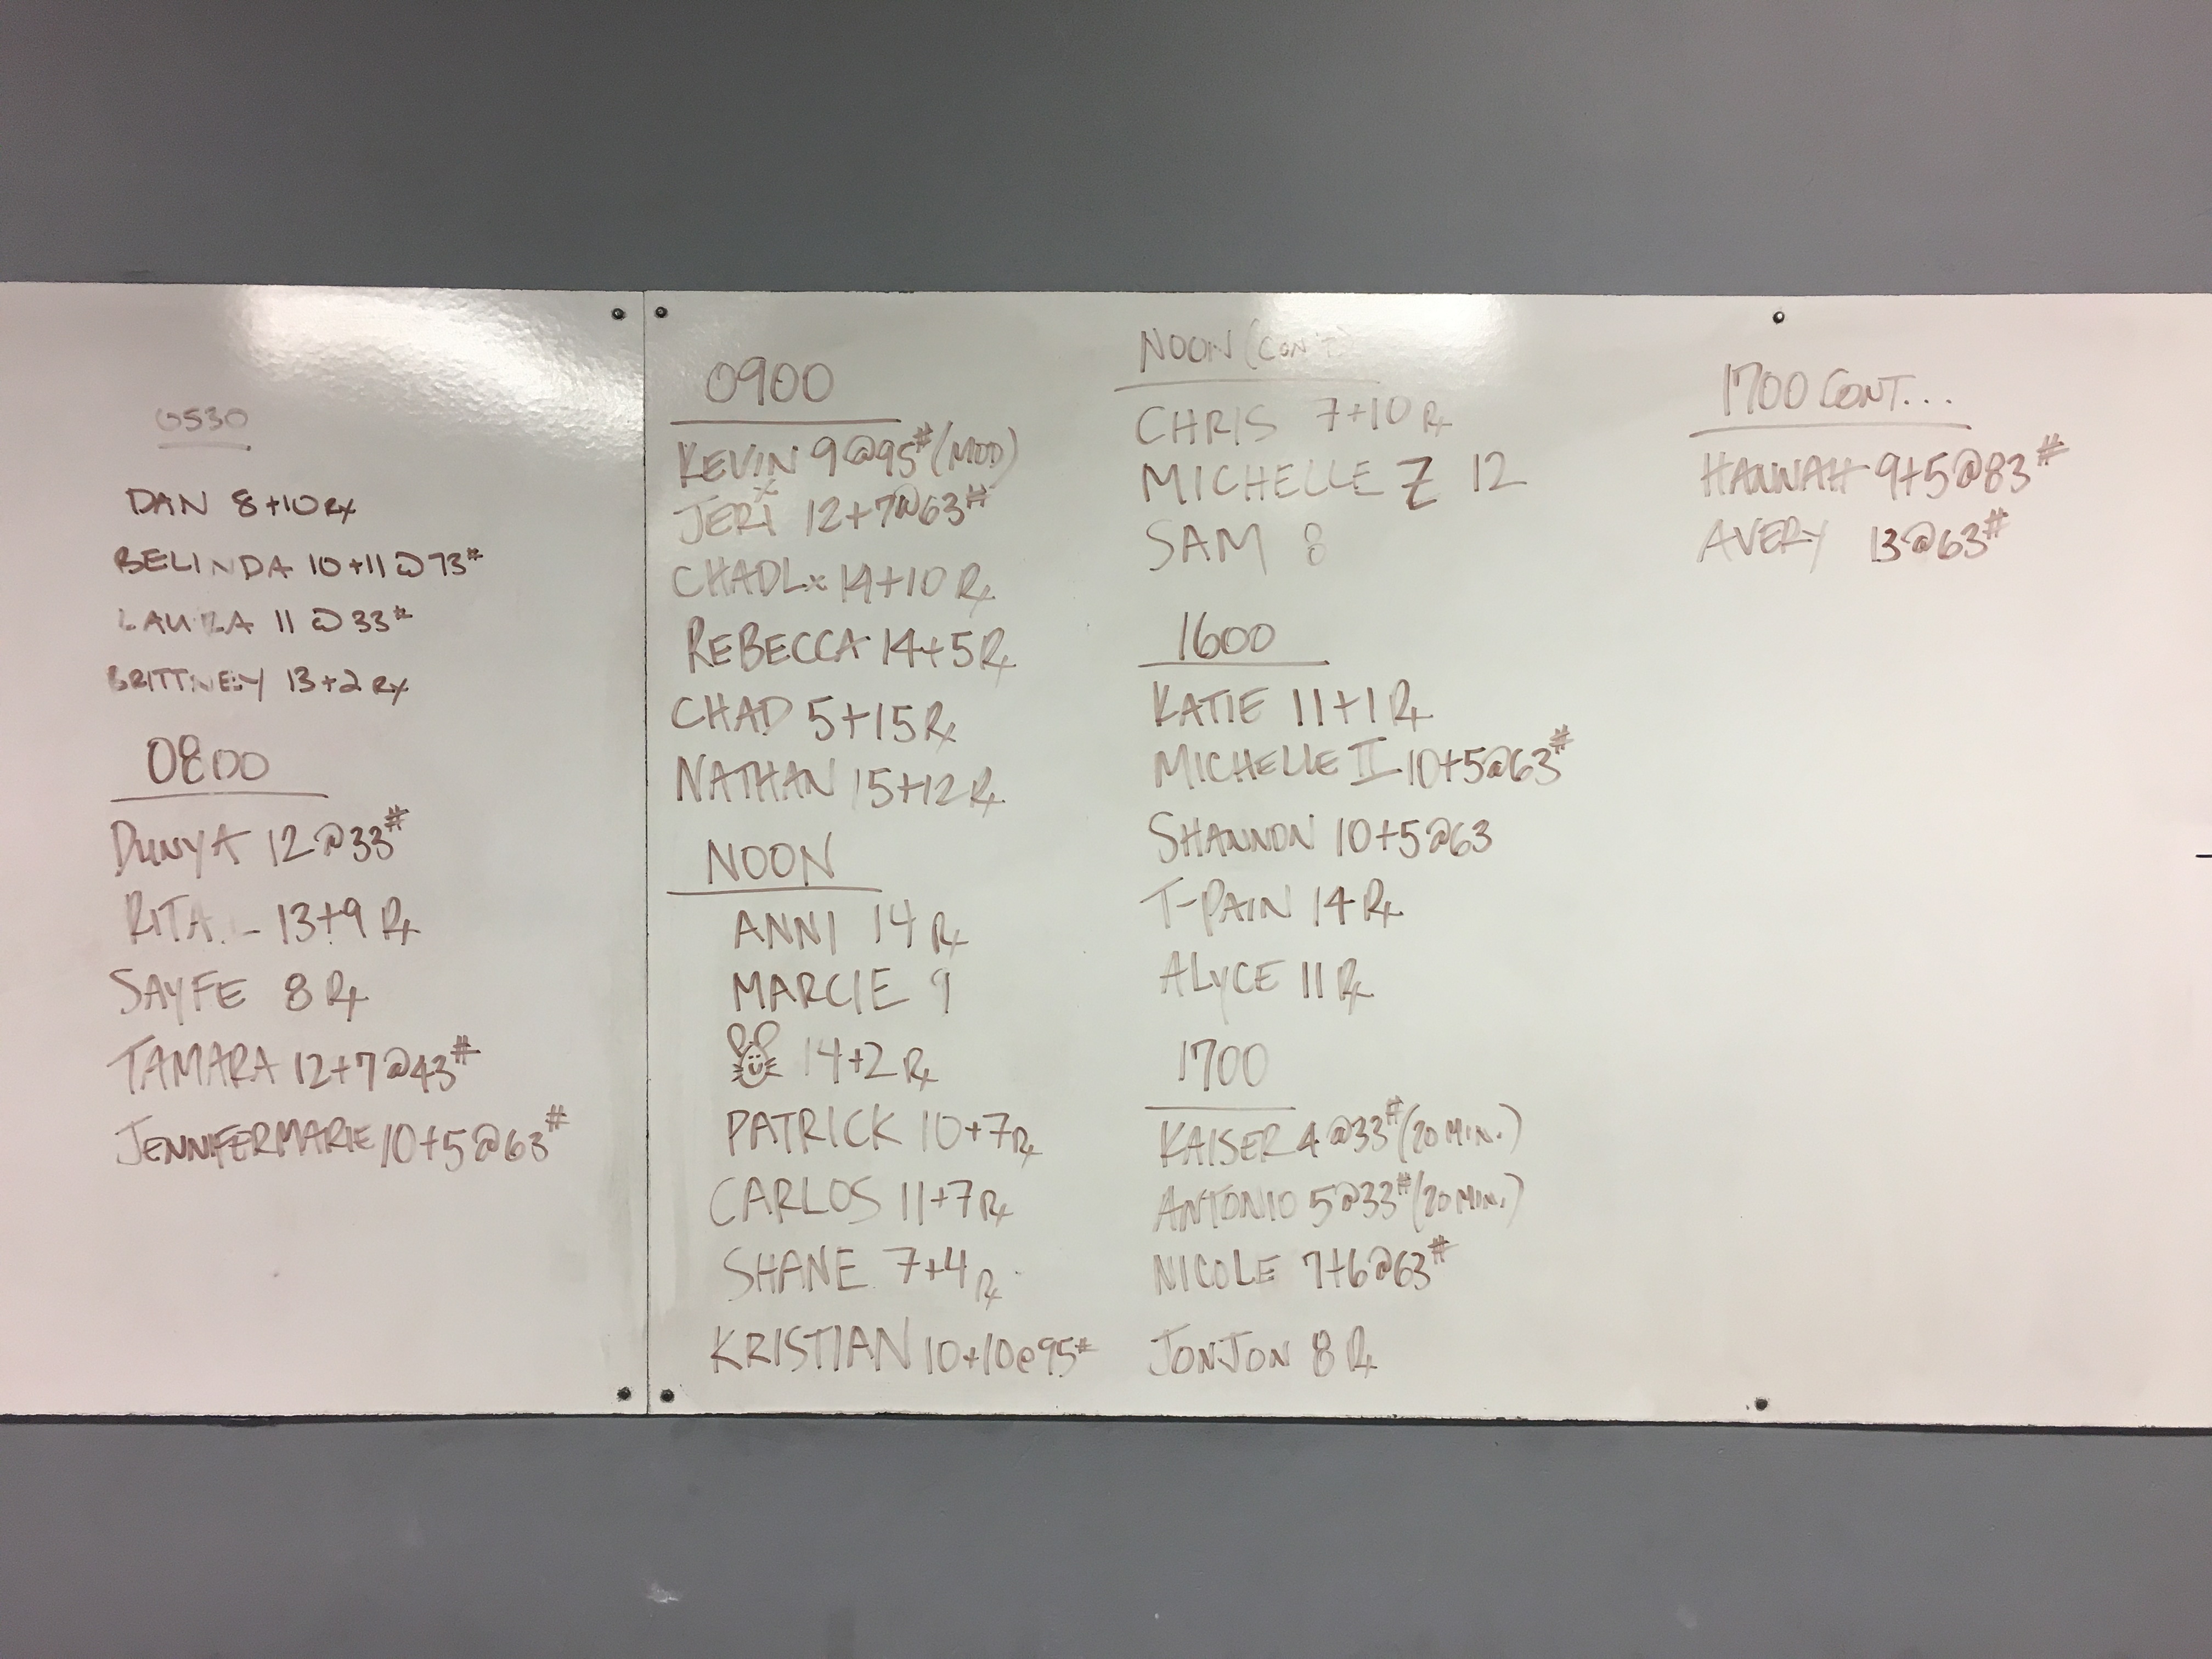 0530
DAN 8+10 Rx
BELINDA 10+11@73#
LAURA 11@33#
BRITTNEY 13+2 Rx
0800
DUNYA 12@33#
RITA - 13+9 Rx
SAYFE 8 Rx
TAMARA 12+7@43#
JENNIFERMARIE 10+5@63#
0900
KEVIN 9@95# (MOD)
JERI 12+7@63#
CHADLx 14+10 Rx
REBECCA 14+5 Rx
CHAD 5+15 Rx
NATHAN 15+12 Rx
NOON
ANNI 14 Rx
MARCIE 9
14+2 Rx
PATRICK 10+7 Rx
CARLOS 11+7 Rx
SHANE 7+4 Rx
KRISTIAN 10+10@95#
NOON (CON'T)
CHRIS 7+10 Rx
MICHELLE Z 12
SAM 8
1600
KATIE 11+1 Rx
MICHELLE II 10+5@63#
SHANNON 10+5@63
T-PAIN 14 Rx
ALYCE 11 Rx
1700
KAISER 4@33# (20 MIN.)
ANTONIO 5@33# (20 MIN.)
NICOLE 7+6@63#
JONJON 8 Rx
1700 CONT...
HANNAH 9+5@83#
AVERY 13@63#